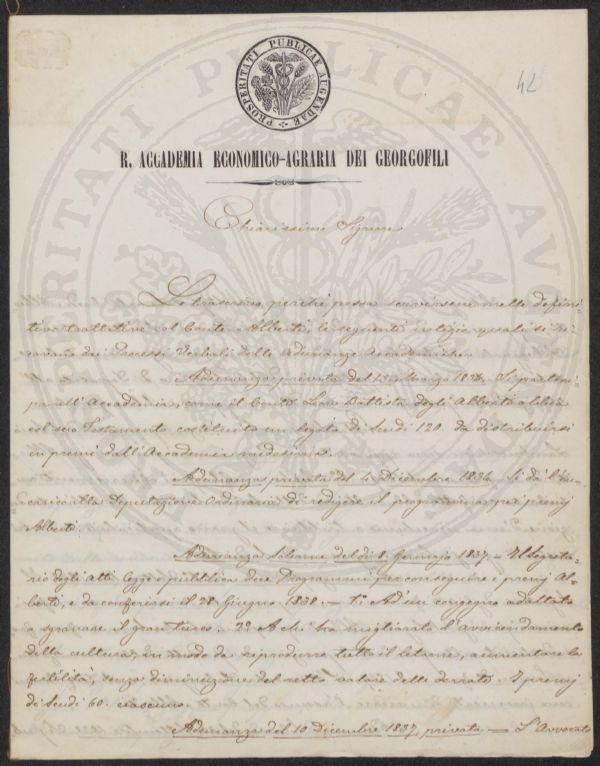 PROSPERITATI PUBLICAE AUGENDAE
42
R. ACCADEMIA ECONOMICO-AGRARIA DEI GEORGOFILI
Chiarissimo Signore
Le trasmetto, perché possa servirsene nelle defini-
tive trattative col Conte Alberti, le seguenti notizie quali si ri-
cavano dai Processi Verbali delle Adunanze Accademiche.
Adunanza privata del 13 Marzo 1836. Si parteci-
pa all'Accademia, come il Conte Leon Battista degli Alberti abbia
col suo Testamento costituito un legato di Scudi 120. da distribuirsi
in premi dall'Accademia medesima.
Adunanza privata del 4. Dicembre 1836. Si dà l'in-
carico alla deputazione Ordinaria di redigere il programma pei premj
Alberti.
Adunanza Solenne del dì 8. Gennajo 1837 = Il Segreta-
rio degli Atti legge e pubblica due Programmi per conseguire i premj Al-
berti, e da conferirsi il 28 Giugno 1838. — 1.° Ad un congegno adattato
a sgranare il gran turco. 2.° A chi ha migliorato l'avvicendamento
della cultura, in modo da riprodurre tutto il letame, aumentare la
fertilità, senza diminuzione del netto valore delle derrate. I premj
di Scudi 60. ciascuno.
Adunanza del 10 Dicembre 1837, privata — L'Avvocato